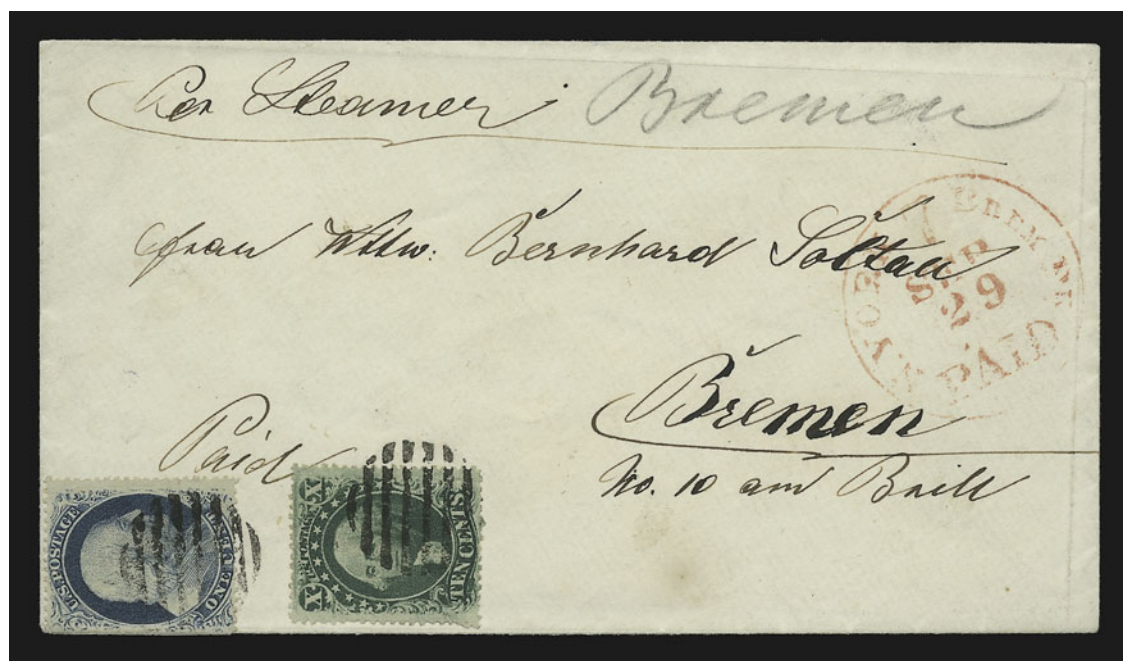 Per Steamer Bremen
Frau Wttw: Bernhard Soltau
N. YORK 7 BREM. PK
SEP
29
PAID
Bremen
No. 10 am Brill
Paid
U.S. POSTAGE
ONE CENT
U.S. POSTAGE
TEN CENTS
X
X